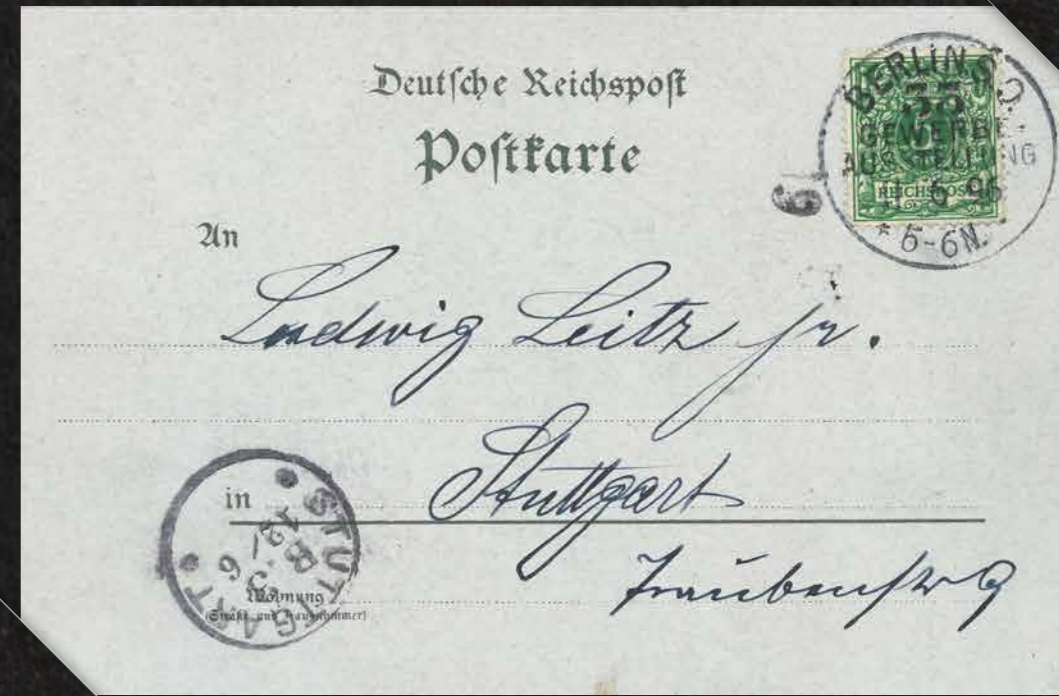 Deutſche Reichspoſt
Poſtkarte
BERLIN S.O.
33
GEWERBE-
AUSSTELLUNG
6 96
5-6N.
5
REICHSPOST
An
Ludwig Leitz jr.
in
Stuttgart
Wohnung
(Straße und Hausnummer)
STUTTGART
B